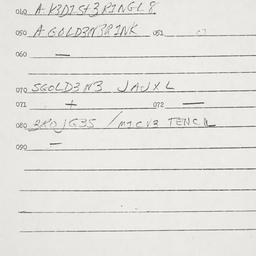 040 A.K3DIST3RINGL8
050 A GOLD3N3RINK 051
060 —
070 SGOLD3N3 JAUXL
071 + 072 —
080 /MICV3 TENCIL
090 —